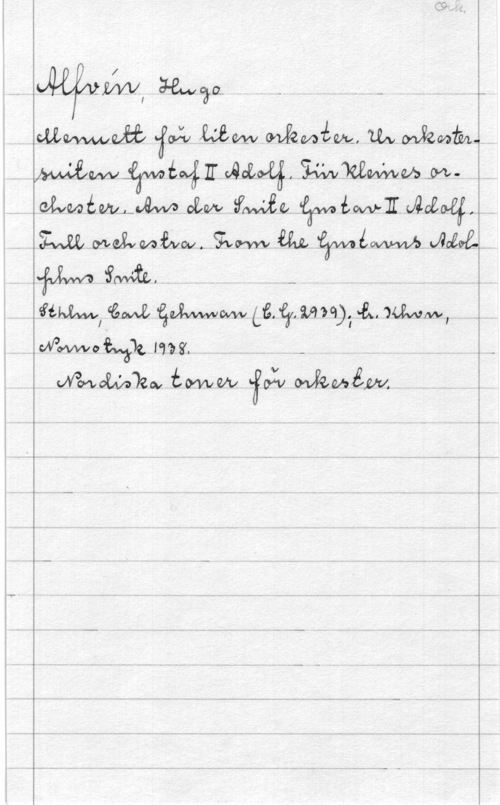 Ork.
Alfvén, Hugo
Menuett för liten orkester. Ur orkester-
suiten Gustaf II Adolf. Für kleines or-
chester. Aus der Suite Gustav II Adolf.
Full orchestra. From the Gustavus Adol-
phus Suite.
Sthlm, Carl Gehrman (C.G. 2939); tr. Khvn,
Nornotryk 1938.
Nordiska toner för orkester.